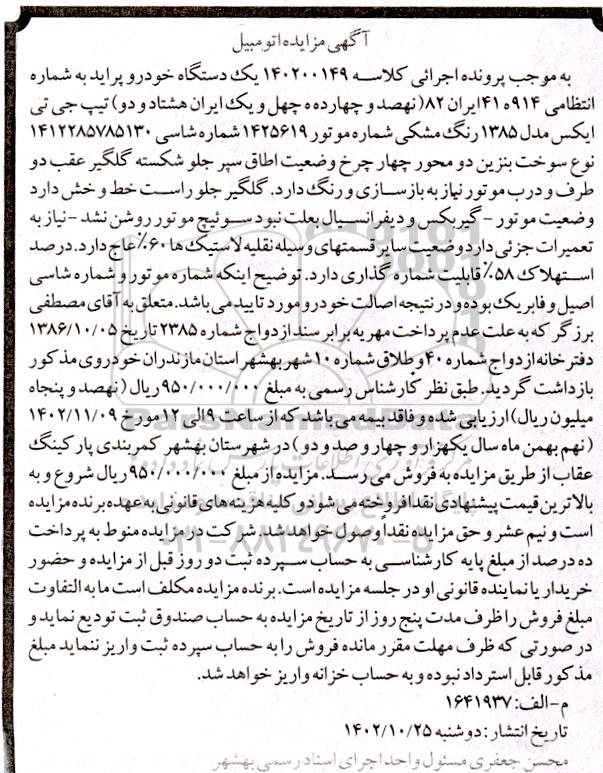 آگهی مزایده اتومبیل
به موجب پرونده اجرائی کلاسه ۱۴۰۲۰۰۱۴۹ یک دستگاه خودرو پراید به شماره
انتظامی ۹۱۴ه ۴۱ ایران ۸۲( نهصد و چهارده ه چهل و یک ایران هشتاد و دو) تیپ جی تی
ایکس مدل ۱۳۸۵ رنگ مشکی شماره موتور ۱۴۲۵۶۱۹ شماره شاسی ۱۴۱۲۲۸۵۷۸۵۱۳۰
نوع سوخت بنزین دو محور چهار چرخ وضعیت اطاق سپر جلو شکسته گلگیر عقب دو
طرف و درب موتور نیاز به بازسازی و رنگ دارد. گلگیر جلو راست خط و خش دارد
وضعیت موتور - گیربکس و دیفرانسیال بعلت نبود سوئیچ موتور روشن نشد - نیاز به
تعمیرات جزئی دارد وضعیت سایر قسمتهای وسیله نقلیه لاستیک ها ۶۰٪ عاج دارد. درصد
استهلاک ۵۸٪ قابلیت شماره گذاری دارد. توضیح اینکه شماره موتور و شماره شاسی
اصیل و فابریک بوده و در نتیجه اصالت خودرو مورد تایید می باشد. متعلق به آقای مصطفی
برزگر که به علت عدم پرداخت مهریه برابر سند ازدواج شماره ۲۳۸۵ تاریخ ۱۳۸۶/۱۰/۰۵
دفترخانه ازدواج شماره ۴۰ و طلاق شماره ۱۰ شهر بهشهر استان مازندران خودروی مذکور
بازداشت گردید. طبق نظر کارشناس رسمی به مبلغ ۹۵۰/۰۰۰/۰۰۰ ریال (نهصد و پنجاه
میلیون ریال) ارزیابی شده و فاقد بیمه می باشد که از ساعت ۹ الی ۱۲ مورخ ۱۴۰۲/۱۱/۰۹
(نهم بهمن ماه سال یکهزار و چهار و صد و دو) در شهرستان بهشهر کمربندی پارکینگ
عقاب از طریق مزایده به فروش می رسد. مزایده از مبلغ ۹۵۰/۰۰۰/۰۰۰ ریال شروع و به
بالاترین قیمت پیشنهادی نقدا فروخته می شود و کلیه هزینه های قانونی به عهده برنده مزایده
است و نیم عشر و حق مزایده نقداً وصول خواهد شد. شرکت در مزایده منوط به پرداخت
ده درصد از مبلغ پایه کارشناسی به حساب سپرده ثبت دو روز قبل از مزایده و حضور
خریدار یا نماینده قانونی او در جلسه مزایده است. برنده مزایده مکلف است مابه التفاوت
مبلغ فروش را ظرف مدت پنج روز از تاریخ مزایده به حساب صندوق ثبت تودیع نماید و
در صورتی که ظرف مهلت مقرر مانده فروش را به حساب سپرده ثبت واریز ننماید مبلغ
مذکور قابل استرداد نبوده و به حساب خزانه واریز خواهد شد.
م-الف: ۱۶۴۱۹۳۷
تاریخ انتشار : دوشنبه ۱۴۰۲/۱۰/۲۵
محسن جعفری مسئول واحد اجرای اسناد رسمی بهشهر
ParsNamadData
۰۲۱-۸۸۳۴۹۶۷۰-۵